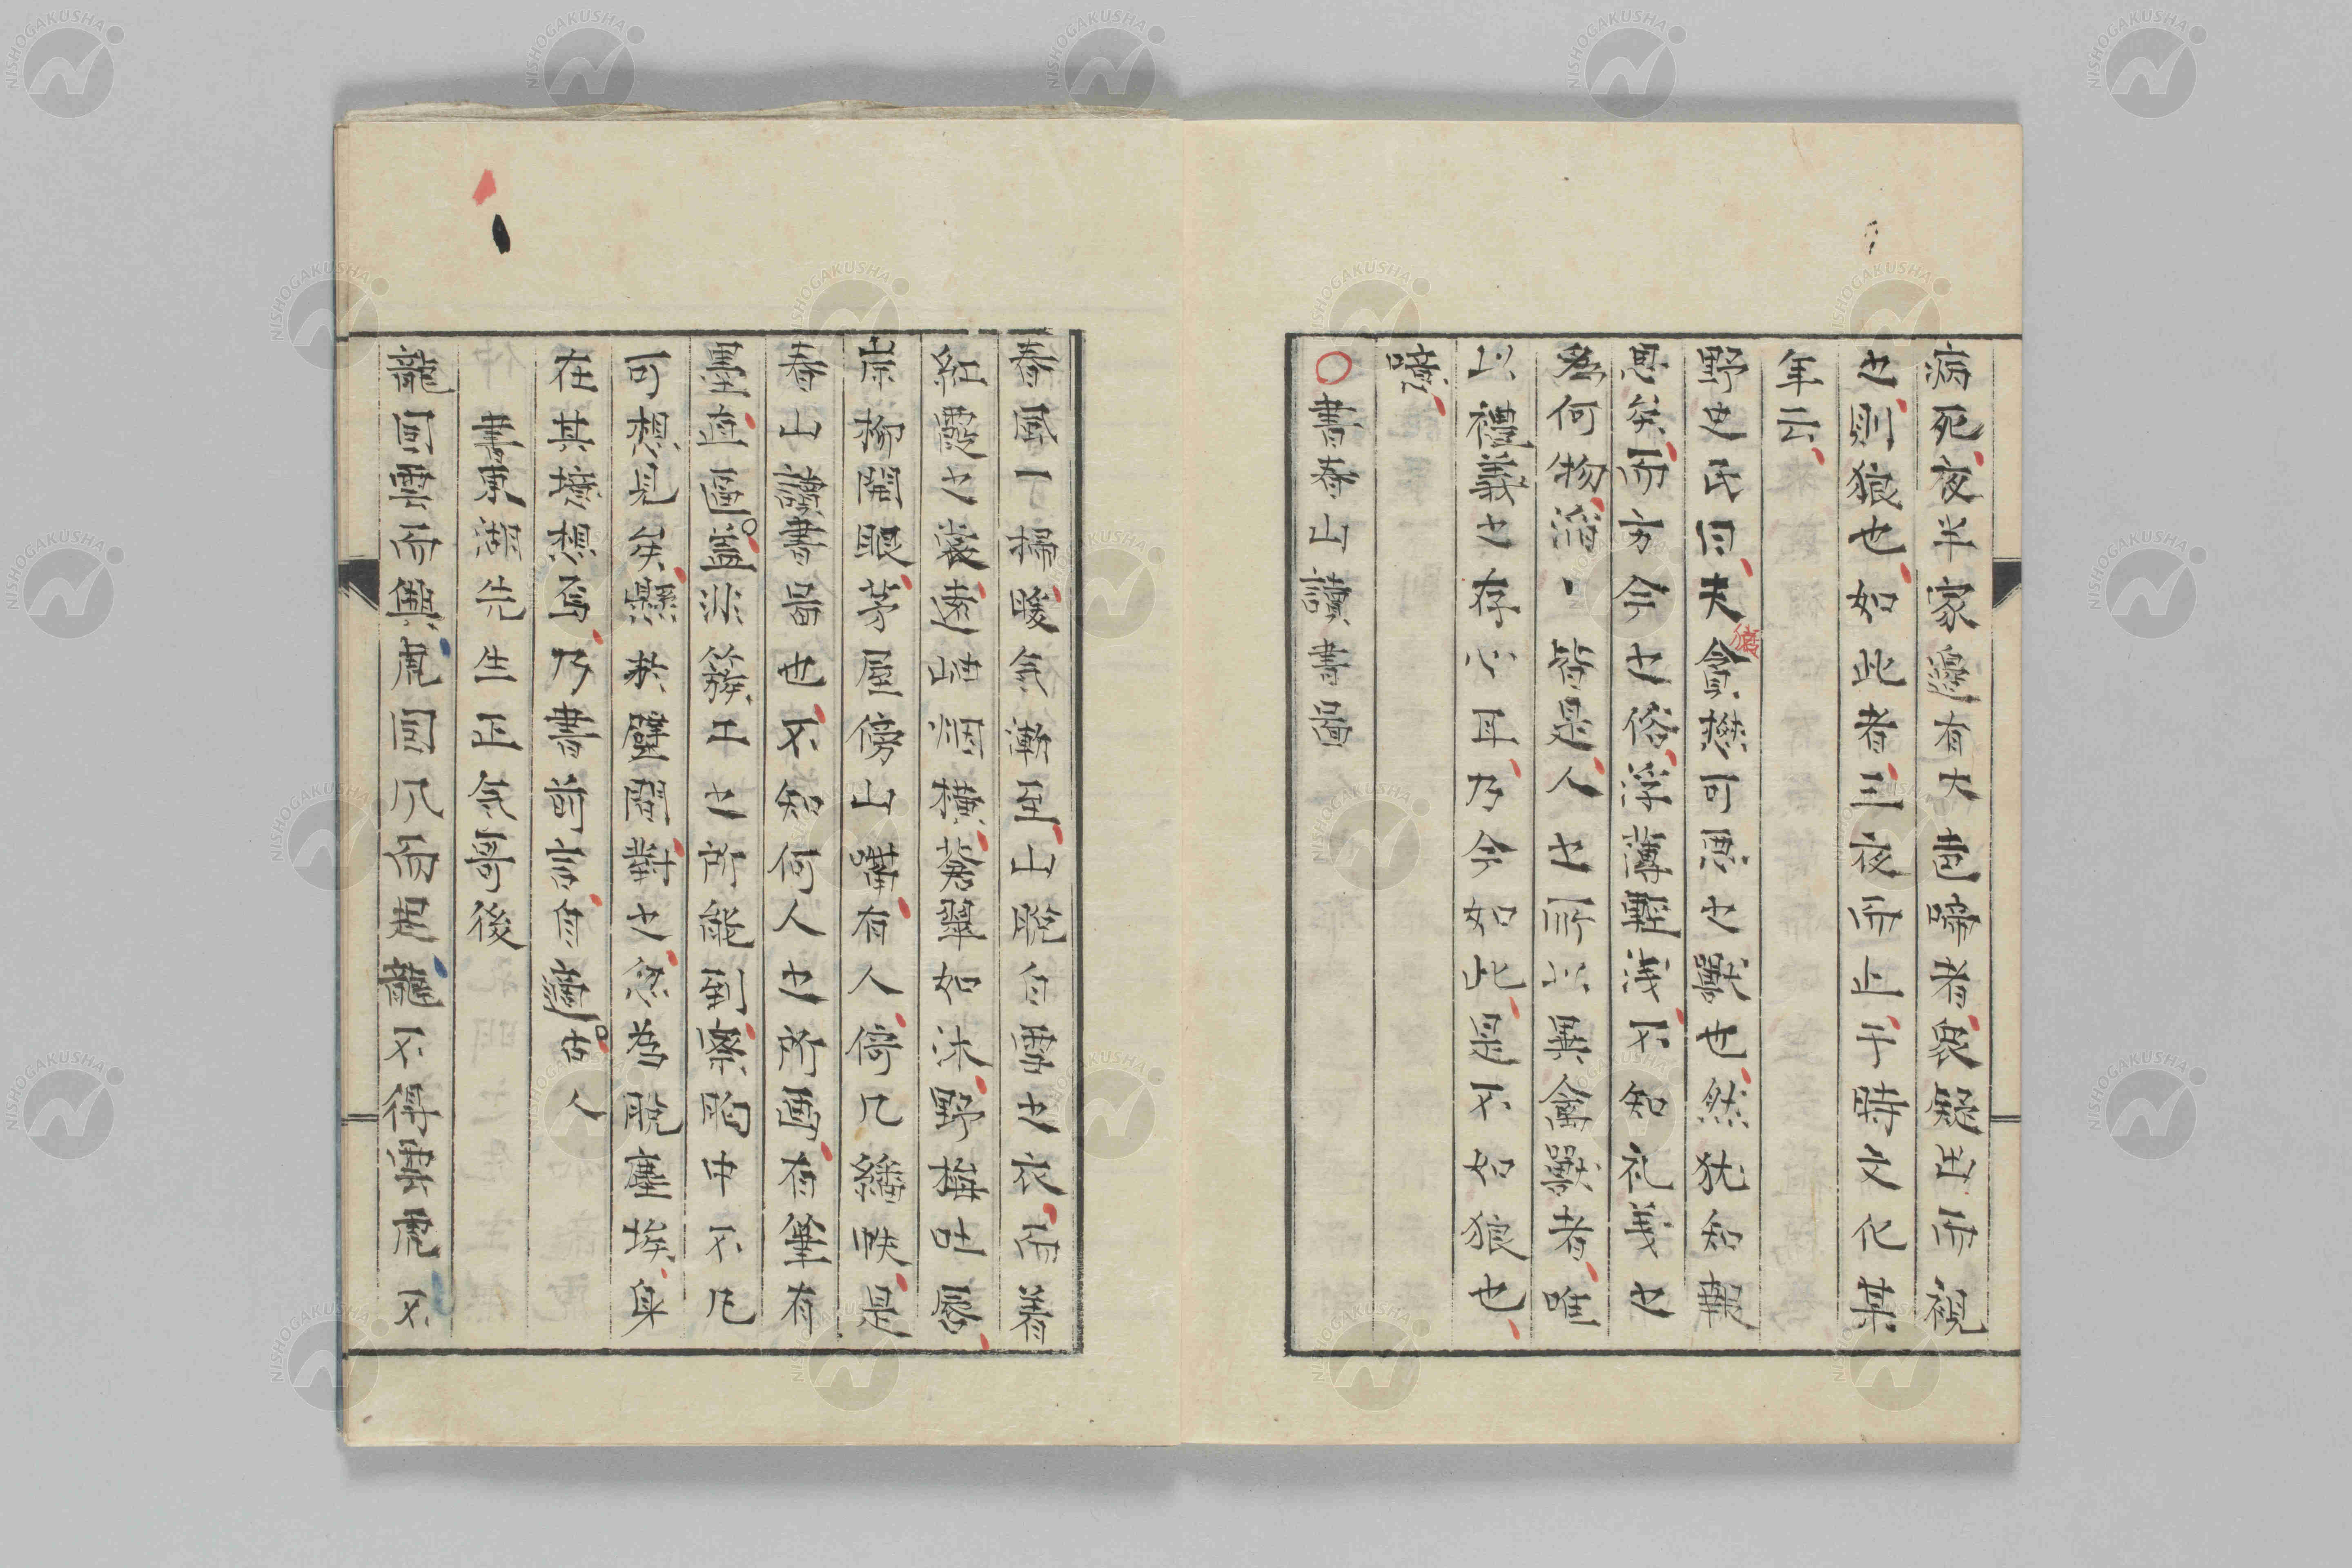 病死夜半家邊有大悲啼者衆疑出而視
之則狼也如此者三夜而止于時文化某
年云
野史氏曰夫貪
猶
㦗可惡之獸也然犹知報
恩矣而方今之俗浮薄輕浅不知礼義之
為何物滔〻皆是人之所以異禽獸者唯
以禮義之存心耳乃今如此是不如狼也
噫
○書春山讀書圖
春風一掃暖氣漸至山脱白雪之衣而着
紅霞之裳遠岫烟横蒼翠如沐野梅吐唇
岸柳開眼茅屋傍山嘴有人倚几繙帙是
春山讀書圖也不知何人之所画有筆有
墨遒圓盖非簇工之所能到襟胸中不凡
可想見矣懸于壁間對之恍為脱塵埃身
在其境想為乃書前言自適古人
書東湖先生正氣哥後
龍因雲而興虎因風而起龍不得雲虎不
NISHOGAKUSHA